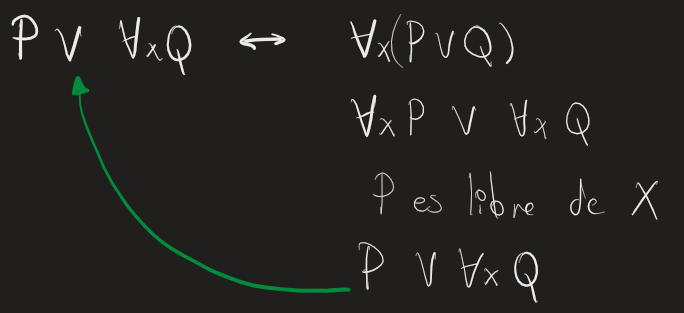 P ∨ ∀xQ ↔ ∀x(P ∨ Q)
∀xP ∨ ∀xQ
P es libre de X
P ∨ ∀xQ